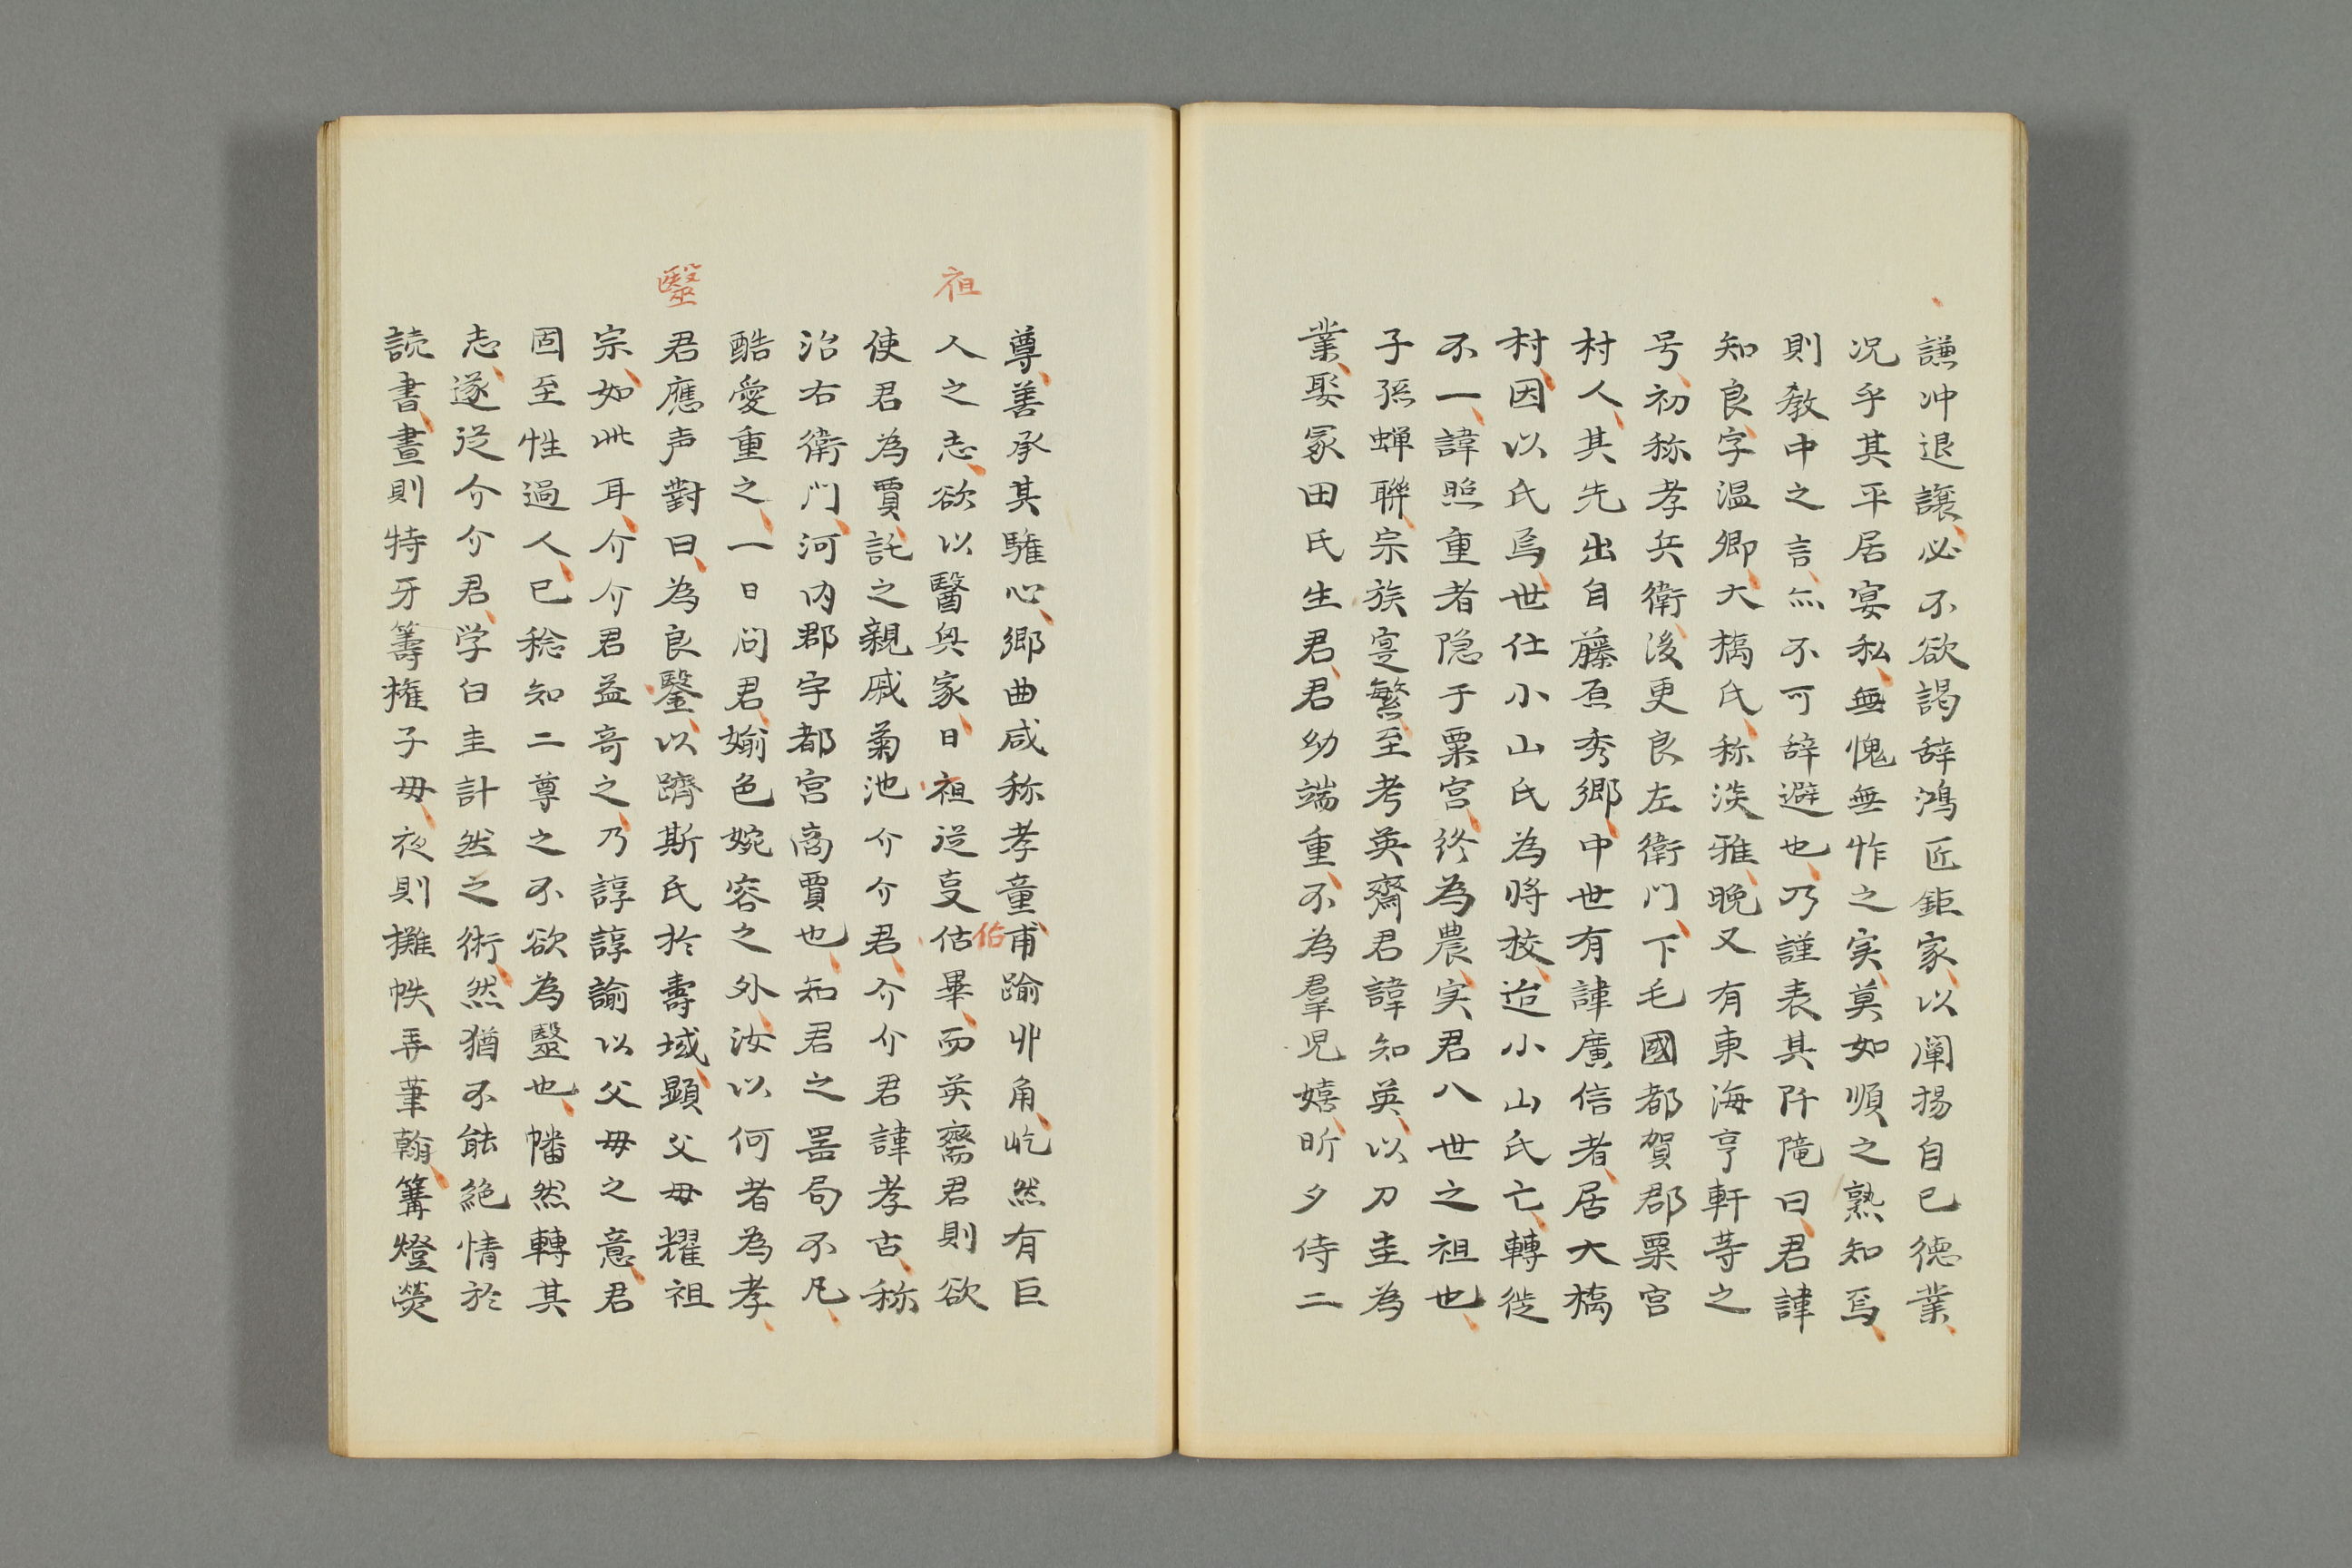 謙冲退譲必不欲謁辞鴻匠鉅家以闡揚自已徳業
况乎其平居宴私無愧無怍之実莫如順之熟知焉
則教中之言亦不可辞避也乃謹表其阡隴曰君諱
知良字温卿大橋氏称淡雅晩又有東海亨軒䓁之
号初称孝兵衛後更良左衛門下毛國都賀郡粟宮
村人其先出自藤原秀郷中世有諱廣信者居大橋
村因以氏焉世仕小山氏為将校迨小山氏亡轉徙
不一諱照重者隠于粟宮終為農実君八世之祖也
子孫蝉聯宗族寔繁至考英齋君諱知英以刀圭為
業娶冡田氏生君君幼端重不為羣児嬉昕夕侍二
尊善承其騅心郷曲咸称孝童甫踰丱角屹然有巨
人之志欲以醫興家日祖従亨估畢而英齋君則欲
祖
佔
使君為賈託之親戚菊池介介君介介君諱孝古称
治右衛門河内郡宇都宮商賈也知君之噐局不凡
酷愛重之一日问君婾色婉容之外汝以何者為孝
君應声對曰為良鑿以躋斯氏於壽域顕父母耀祖
毉
宗如此耳介介君益竒之乃諄諄諭以父母之意君
固至性過人已稔知二尊之不欲為毉也幡然轉其
志遂従介介君学白圭計然之術然猶不能絶情於
読書晝則特牙籌権子母夜則攤帙弄筆翰篝燈熒